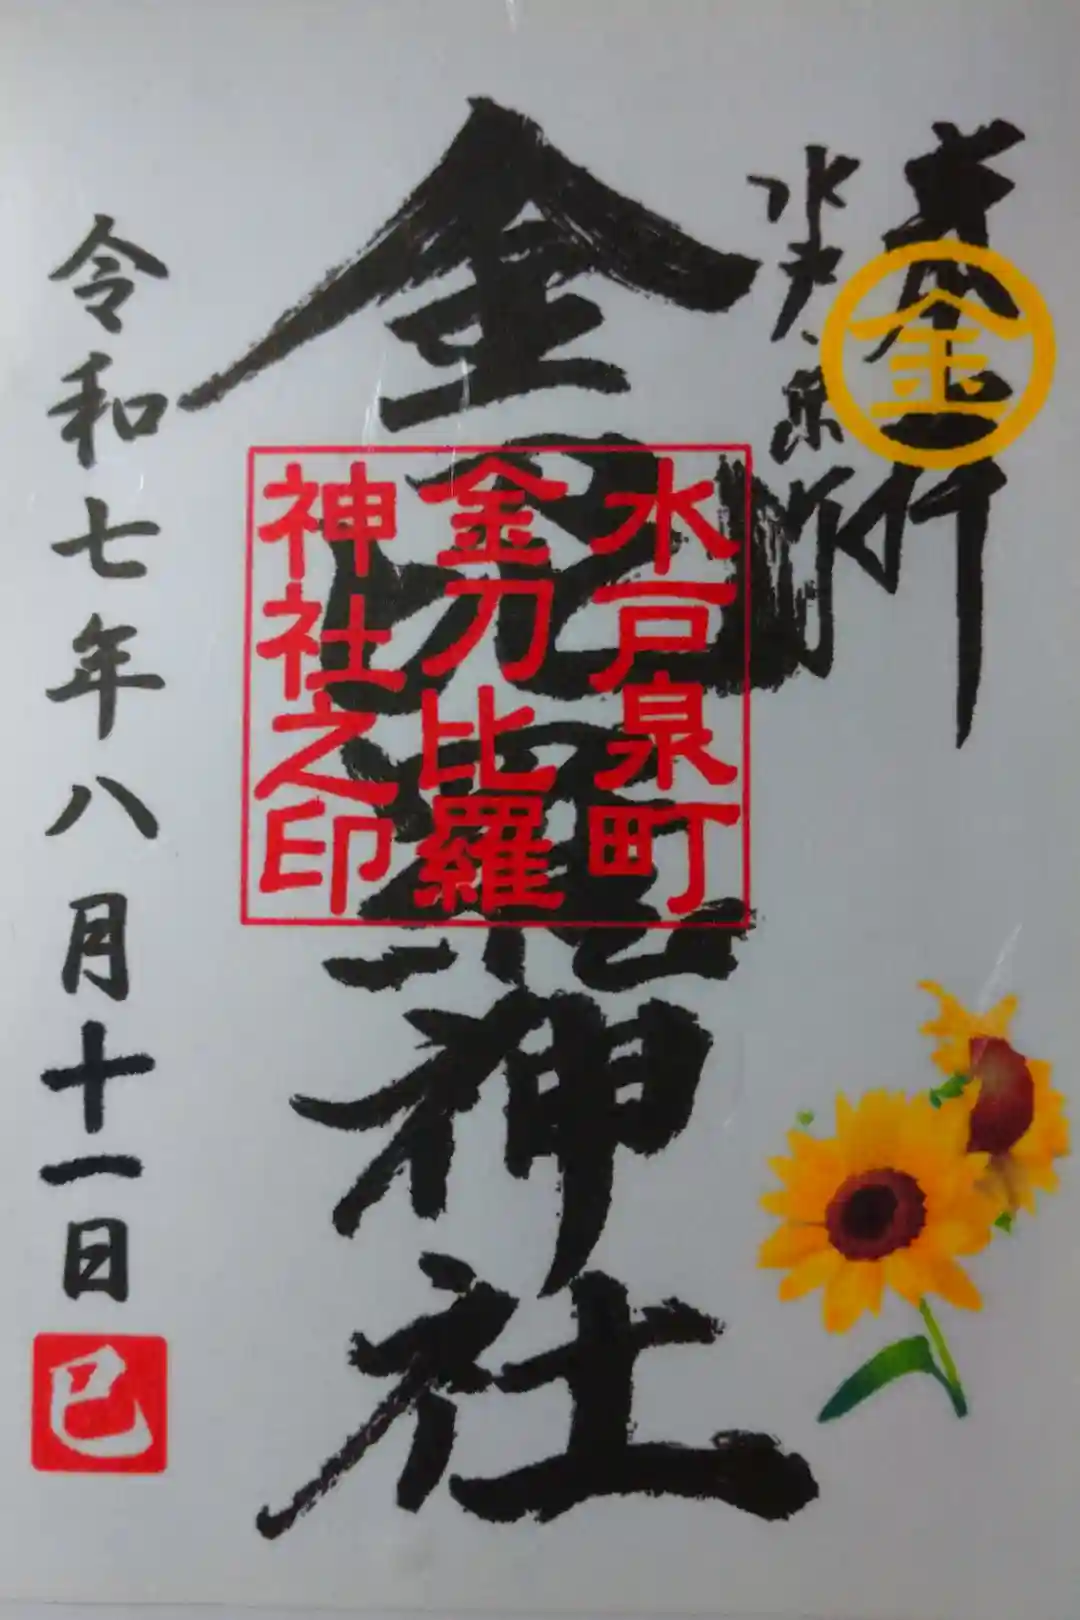 奉拝
金
水戸
金刀比羅神社
水戸泉町
金刀比羅
神社之印
令和七年八月十一日
巳